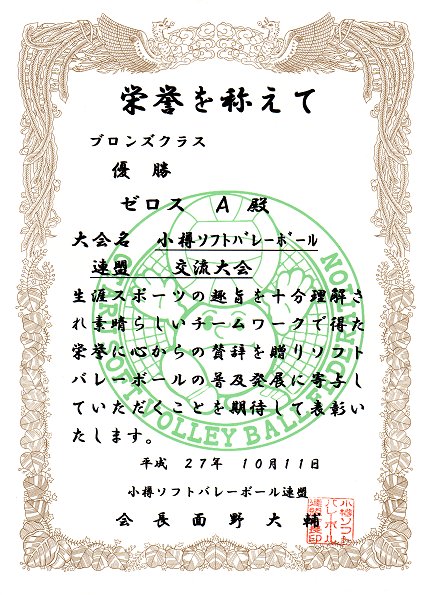 栄誉を称えて
ブロンズクラス
優勝
ゼロス A 殿
大会名 小樽ソフトバレーボール
連盟 交流大会
生涯スポーツの趣旨を十分理解さ
れ素晴らしいチームワークで得た
栄誉に心からの賛辞を贈りソフト
バレーボールの普及発展に寄与し
ていただくことを期待して表彰い
たします。
平成 27年 10月11日
小樽ソフトバレーボール連盟
会長 面野大輔